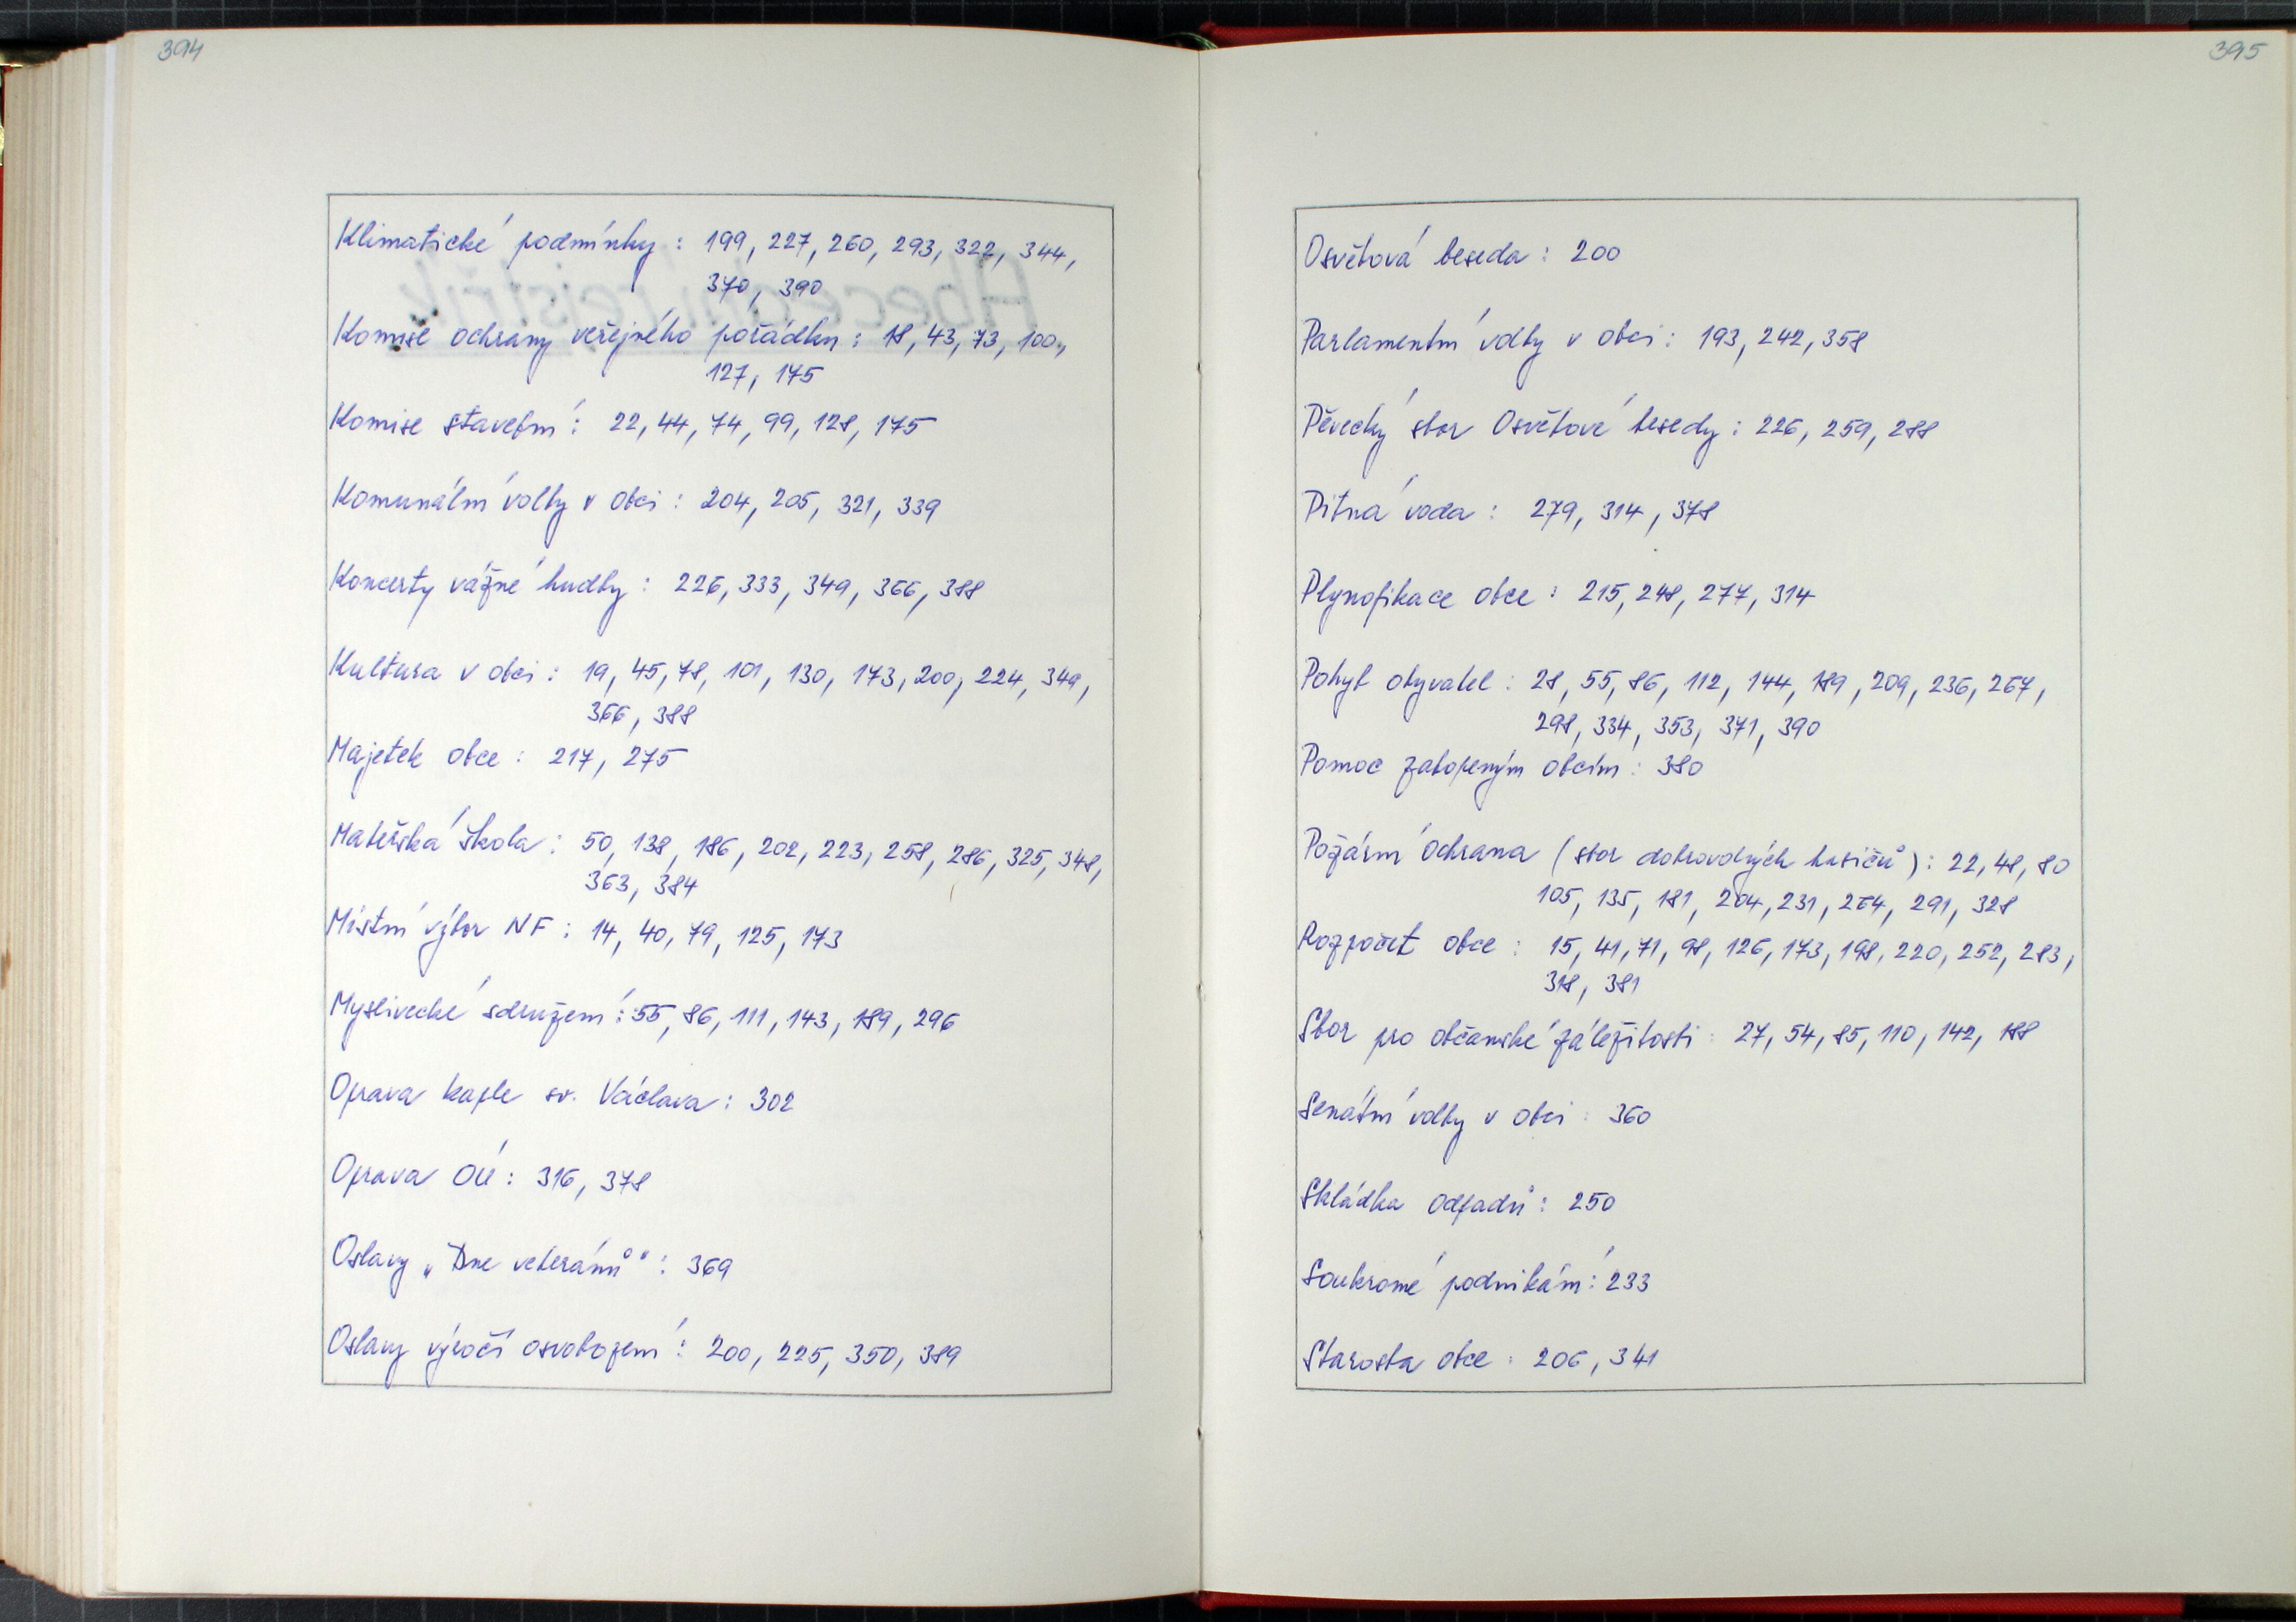 394
Klimatické podmínky : 199, 227, 260, 293, 322, 344,
370, 390
Komise ochrany veřejného pořádku : 18, 43, 73, 100,
127, 175
Komise stavební : 22, 44, 74, 99, 128, 175
Komunální volby v obci : 204, 205, 321, 339
Koncerty vážné hudby : 226, 333, 349, 366, 388
Kultura v obci : 19, 45, 78, 101, 130, 173, 200, 224, 349,
366, 388
Majetek obce : 217, 275
Mateřská škola : 50, 138, 186, 202, 223, 258, 286, 325, 348,
363, 384
Místní výbor NF : 14, 40, 79, 125, 173
Myslivecké sdružení : 55, 86, 111, 143, 189, 296
Oprava kaple sv. Václava : 302
Oprava OÚ : 316, 378
Oslavy „Dne veteránů" : 369
Oslavy výročí osvobození : 200, 225, 350, 389
395
Osvětová beseda : 200
Parlamentní volby v obci : 193, 242, 358
Pěvecký sbor Osvětové besedy : 226, 259, 288
Pitná voda : 279, 314, 378
Plynofikace obce : 215, 248, 277, 314
Pohyb obyvatel : 28, 55, 86, 112, 144, 189, 209, 236, 267,
298, 334, 353, 371, 390
Pomoc zatopeným obcím : 380
Požární ochrana (sbor dobrovolných hasičů) : 22, 48, 80
105, 135, 181, 204, 231, 264, 291, 328
Rozpočet obce : 15, 41, 71, 98, 126, 173, 198, 220, 252, 283,
318, 381
Sbor pro občanské záležitosti : 27, 54, 85, 110, 142, 188
Senátní volby v obci : 360
Skládka odpadů : 250
Soukromé podnikání : 233
Starosta obce : 206, 341